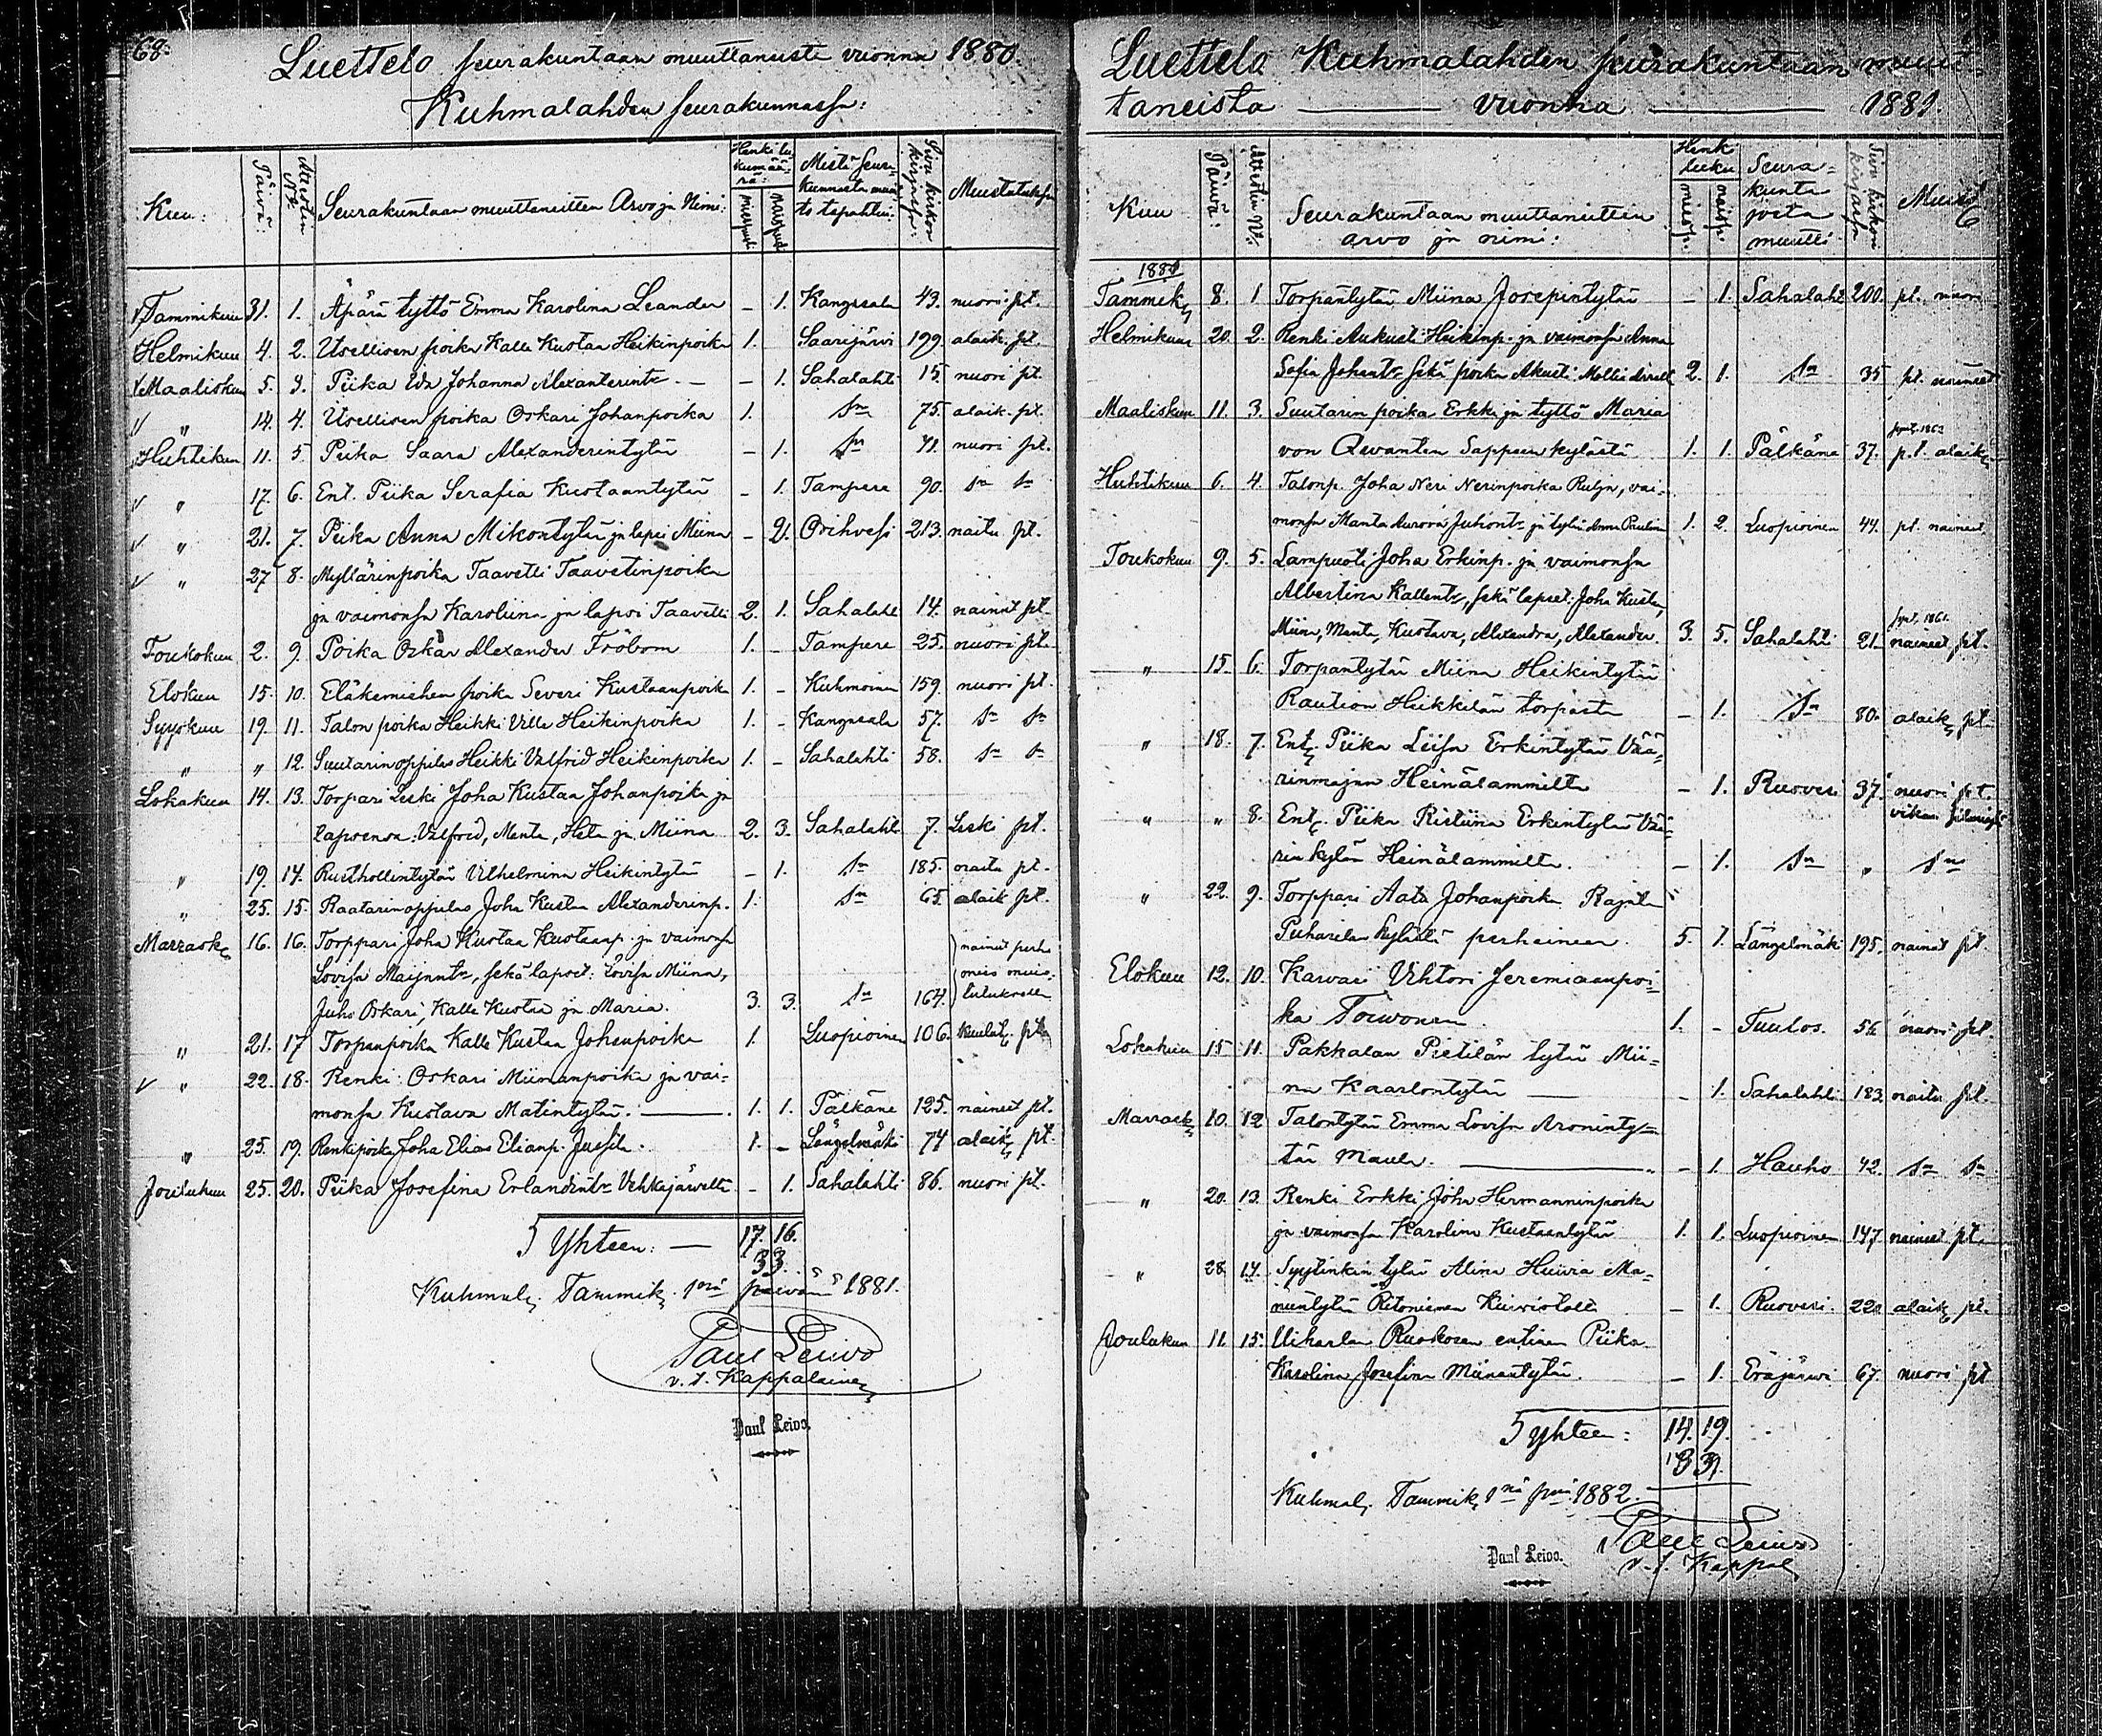 68.
Luettelo seurakuntaan muuttaneista vuonna 1880.
Kuhmalahden seurakunnassa:
Kuu: Päivä: Attestin No. Seurakuntaan muuttaneitten Arvo ja Nimi: Henkilukumäärä: miespuoli naispuoli Mistä Seurakunnasta muutto tapahtui: Sivu kirkonkirjassa: Muistutuksia
Tammikuu 31. 1. Äpärä tyttö Emma Karolina Leander – 1. Kangasala 43. nuori pt.
Helmikuu 4. 2. Itsellisen poika Kalle Kustaa Heikinpoika 1. Saarijärvi 199. alaik. pt.
Maaliskuu 5. 3. Piika Ida Johanna Alexanterintr – – 1. Sahalahti 15. nuori pt.
" 14. 4. Itsellisen poika Oskari Johanpoika 1. Sn 75. alaik. pt.
Huhtikuu 11. 5. Piika Saara Alexanderintytär – 1. Sn 71. nuori pt.
" 17. 6. Ent. Piika Serafia Kustaantytär – 1. Tampere 90. Sn Sn
" 21. 7. Piika Anna Mikontytär ja lapsi Miina – 2. Orihvesi 213. naitu pt.
" 27 8. Myllärinpoika Taavetti Taavetinpoika
ja vaimonsa Karoliina ja lapsi Taavetti 2. 1. Sahalahti 14. nainut pt.
Toukokuu 2. 9. Poika Oskar Alexander Fröbom 1. – Tampere 25. nuori pt.
Elokuu 15. 10. Eläkemiehen poika Severi Kustaanpoika 1. – Kuhmoinen 159. nuori pt.
Syyskuu 19. 11. Talon poika Heikki Ville Heikinpoika 1. – Kangasala 57. Sn Sn
" " 12. Suutarinoppilas Heikki Valfrid Heikinpoika 1. – Sahalahti 58. Sn Sn
Lokakuu 14. 13. Torpari Leski Joha Kustaa Johanpoika ja
lapsensa: Valfrid, Manta, Heta ja Miina 2. 3. Sahalahti 7. Leski pt.
" 19. 14. Rusthollintytär Vilhelmina Heikintytär – 1. Sn 185. naitu pt.
" 25. 15. Raatarinoppilas Joha Kustaa Alexanderinp. 1. Sn 65. alaik pt.
Marrask. 16. 16. Torppari Joha Kustaa Kustaanp. ja vaimonsa
Lovisa Maijantr, sekä lapset: Lovisa Miina, nainut perhe
Juho Oskari, Kalle Kustaa ja Maria. 3. 3. Sn 164.
" 21. 17 Torpanpoika Kalle Kustaa Johanpoika 1. Luopioinen 106.
" 22. 18. Renki: Oskari Miinanpoika ja vai-
monsa Kustava Matintytär. 1. 1. Pälkäne 125. naineet pt.
" 25. 19. Renkipoika Joha Elias Elianp. Jussila. 1. – Längelmäki 74 alaik. pt.
Joulukuu 25. 20. Piika Josefina Erlandintr Vehkajärveltä – 1. Sahalahti 86. nuori pt.
Yhteen: – 17. 16.
33.
Kuhmal. Tammik. 1nä päivänä 1881.
Paul Leivo
v.t. Kappalainen
Paul Leivo.
Luettelo Kuhmalahden seurakuntaan muut-
taneista vuonna 1881
Kuu Päivä: Attestin No. Seurakuntaan muuttaneitten arvo ja nimi: Henk luku miesp. naisp. Seurakunta josta muutti Sivu kirkonkirjassa Muist
1881
Tammik. 8. 1 Torpantytär Miina Josepintytär – 1. Sahalaht 200. pt. nuori
Helmikuu 20. 2. Renki Aukusti Heikinp. ja vaimonsa Anna
Sofia Johantr sekä poika Akusti 2. 1. Sn 35 pt. naineet
Maaliskuu 11. 3. Suutarin poika Erkki ja tyttö Maria
von Qvanten Sappeen kylästä 1. 1. Pälkäne 37. p.t. alaik.
Huhtikuu 6. 4. Talonp. Joha Neri Nerinpoika, vai-
monsa Manta Aurora Juhontr ja tytär Anna Pauliina 1. 2. Luopioinen 44. pt. naineet
Toukokuu 9. 5. Lampuoti Joha Erkinp. ja vaimonsa
Albertina Kallentr, sekä lapset: Joha Kustaa,
Miina, Manta, Kustava, Alexandra, Alexander. 3. 5. Sahalahti 21. naineet pt.
" 15 6. Torpantytär Miina Heikintytär
Raution Heikkilän torpasta – 1. Sn 80. alaik. pt.
" 18. 7. Ent. Piika Liisa Erkintytär Vää-
rinmajan Heinälammilta – 1. Ruovesi 37. nuori pt
" " 8. Ent. Piika Ristiina Erkintytär Vää-
rin kylän Heinälammilta. – 1. Sn " Sn
" 22. 9. Torppari Aato Johanpoika Rajala
Puharilan kylästä perheineen. 5. 1. Längelmäki 195. nainut pt.
Elokuu 12. 10. Karvari Vihtori Jeremiaanpoi-
ka Toivonen. 1. – Tuulos. 56 nuori pt.
Lokakuu 15 11. Pakkalan Pietilän tytär Mii-
na Kaarlontytär – – 1. Sahalahti 183 naitu pt.
Marrask. 10. 12 Talontytär Emma Lovisa Aroninty-
tär Maula. – 1. Hauho 42. Sn Sn
" 20. 13. Renki Erkki Joha Hermanninpoika
ja vaimonsa Karolina Kustaantytär 1. 1. Luopioinen 147 naineet pt.
" 28. 14. Syytinkin tytär Alina Ma-
nuntytär 1. Ruovesi. 220 alaik. pt.
Joulukuu 11. 15. Uiharlan Ruoskosen entinen Piika
Karolina Josefina Miinantytär. – 1. Eräjärvi 67. nuori pt
Yhteen: 14. 19.
33.
Kuhmal. Tammik. 1nä pnä 1882.
Paul Leivo
v.t. Kappal
Paul Leivo.